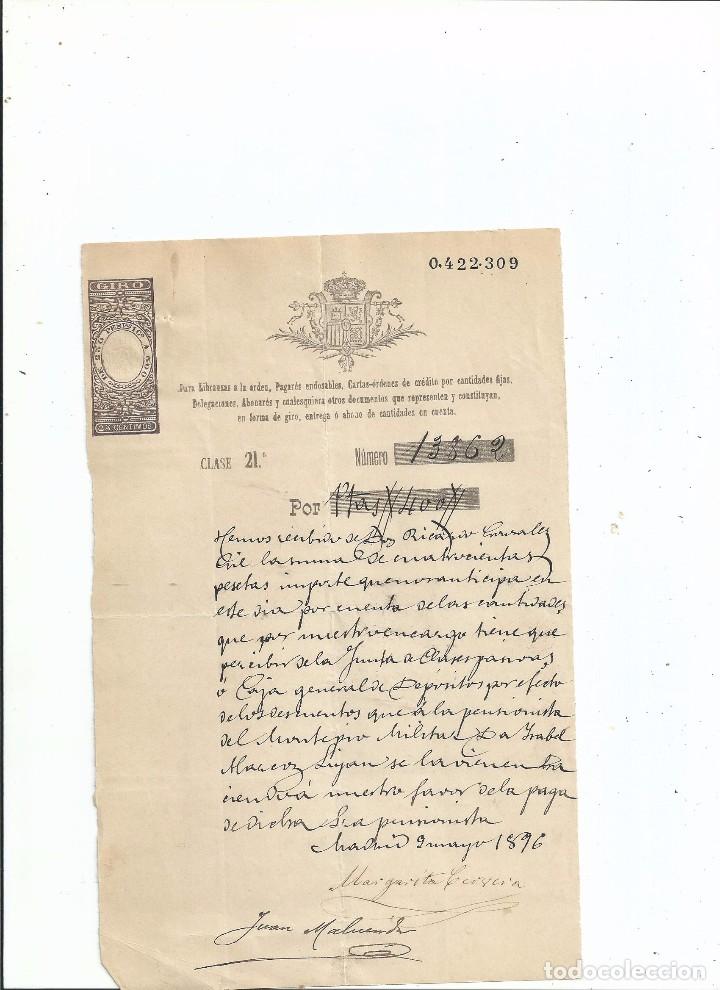 0.422.309
GIRO
DESDE
Para Libranzas a la orden, Pagarés endosables, Cartas-órdenes de crédito por cantidades fijas,
Delegaciones, Abonarés y cualesquiera otros documentos que representen y constituyan,
en forma de giro, entrega ó abono de cantidades en cuenta.
CLASE 21.ª Número 13862
Por Ptas // 400 //
Hemos recibido de Don Ricardo Gonzalez
Gil la suma de cuatrocientas
pesetas importe que nos anticipa en
este dia por cuenta de las cantidades
que por nuestro encargo tiene que
percibir de la Junta de Clases pasivas
ó Caja general de Depósitos por efecto
de los descuentos que á la pensionista
del Montepio Militar Da Isabel
Marcoz Lujan se la vienen
ciendo á nuestro favor de la paga
de dicha Sra pensionista
Madrid 9 mayo 1896
Margarita Cervera
Juan Maluenda
todocoleccion